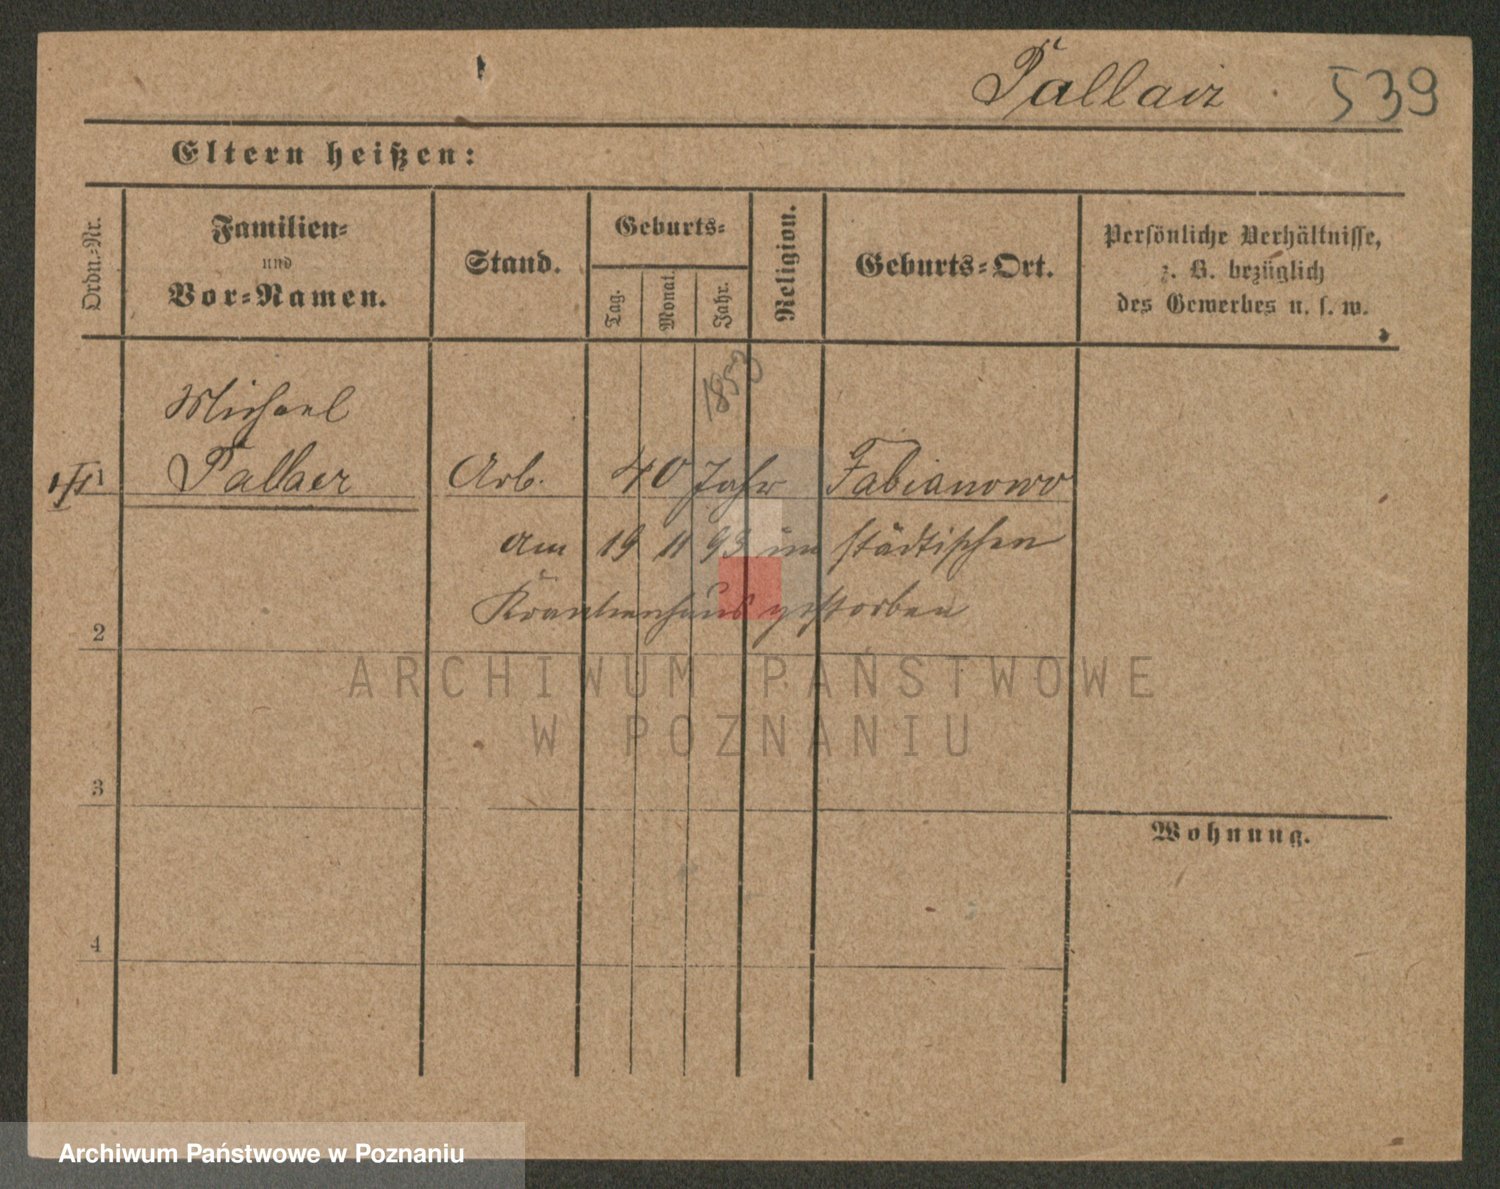 Tallair 539
Eltern heißen:
Ordn.-Nr.
Familien-
und
Vor-Namen.
Stand.
Geburts-
Tag.
Monat.
Jahr.
Religion.
Geburts-Ort.
Persönliche Verhältnisse,
z. B. bezüglich
des Gewerbes u. s. w.
1853
Michael
1 Tallaer Arb. 40 Jahr Fabianowo
am 19 11 93 im städtischen
Krankenhaus gestorben
2
ARCHIWUM PAŃSTWOWE
W POZNANIU
3
Wohnung.
4
Archiwum Państwowe w Poznaniu